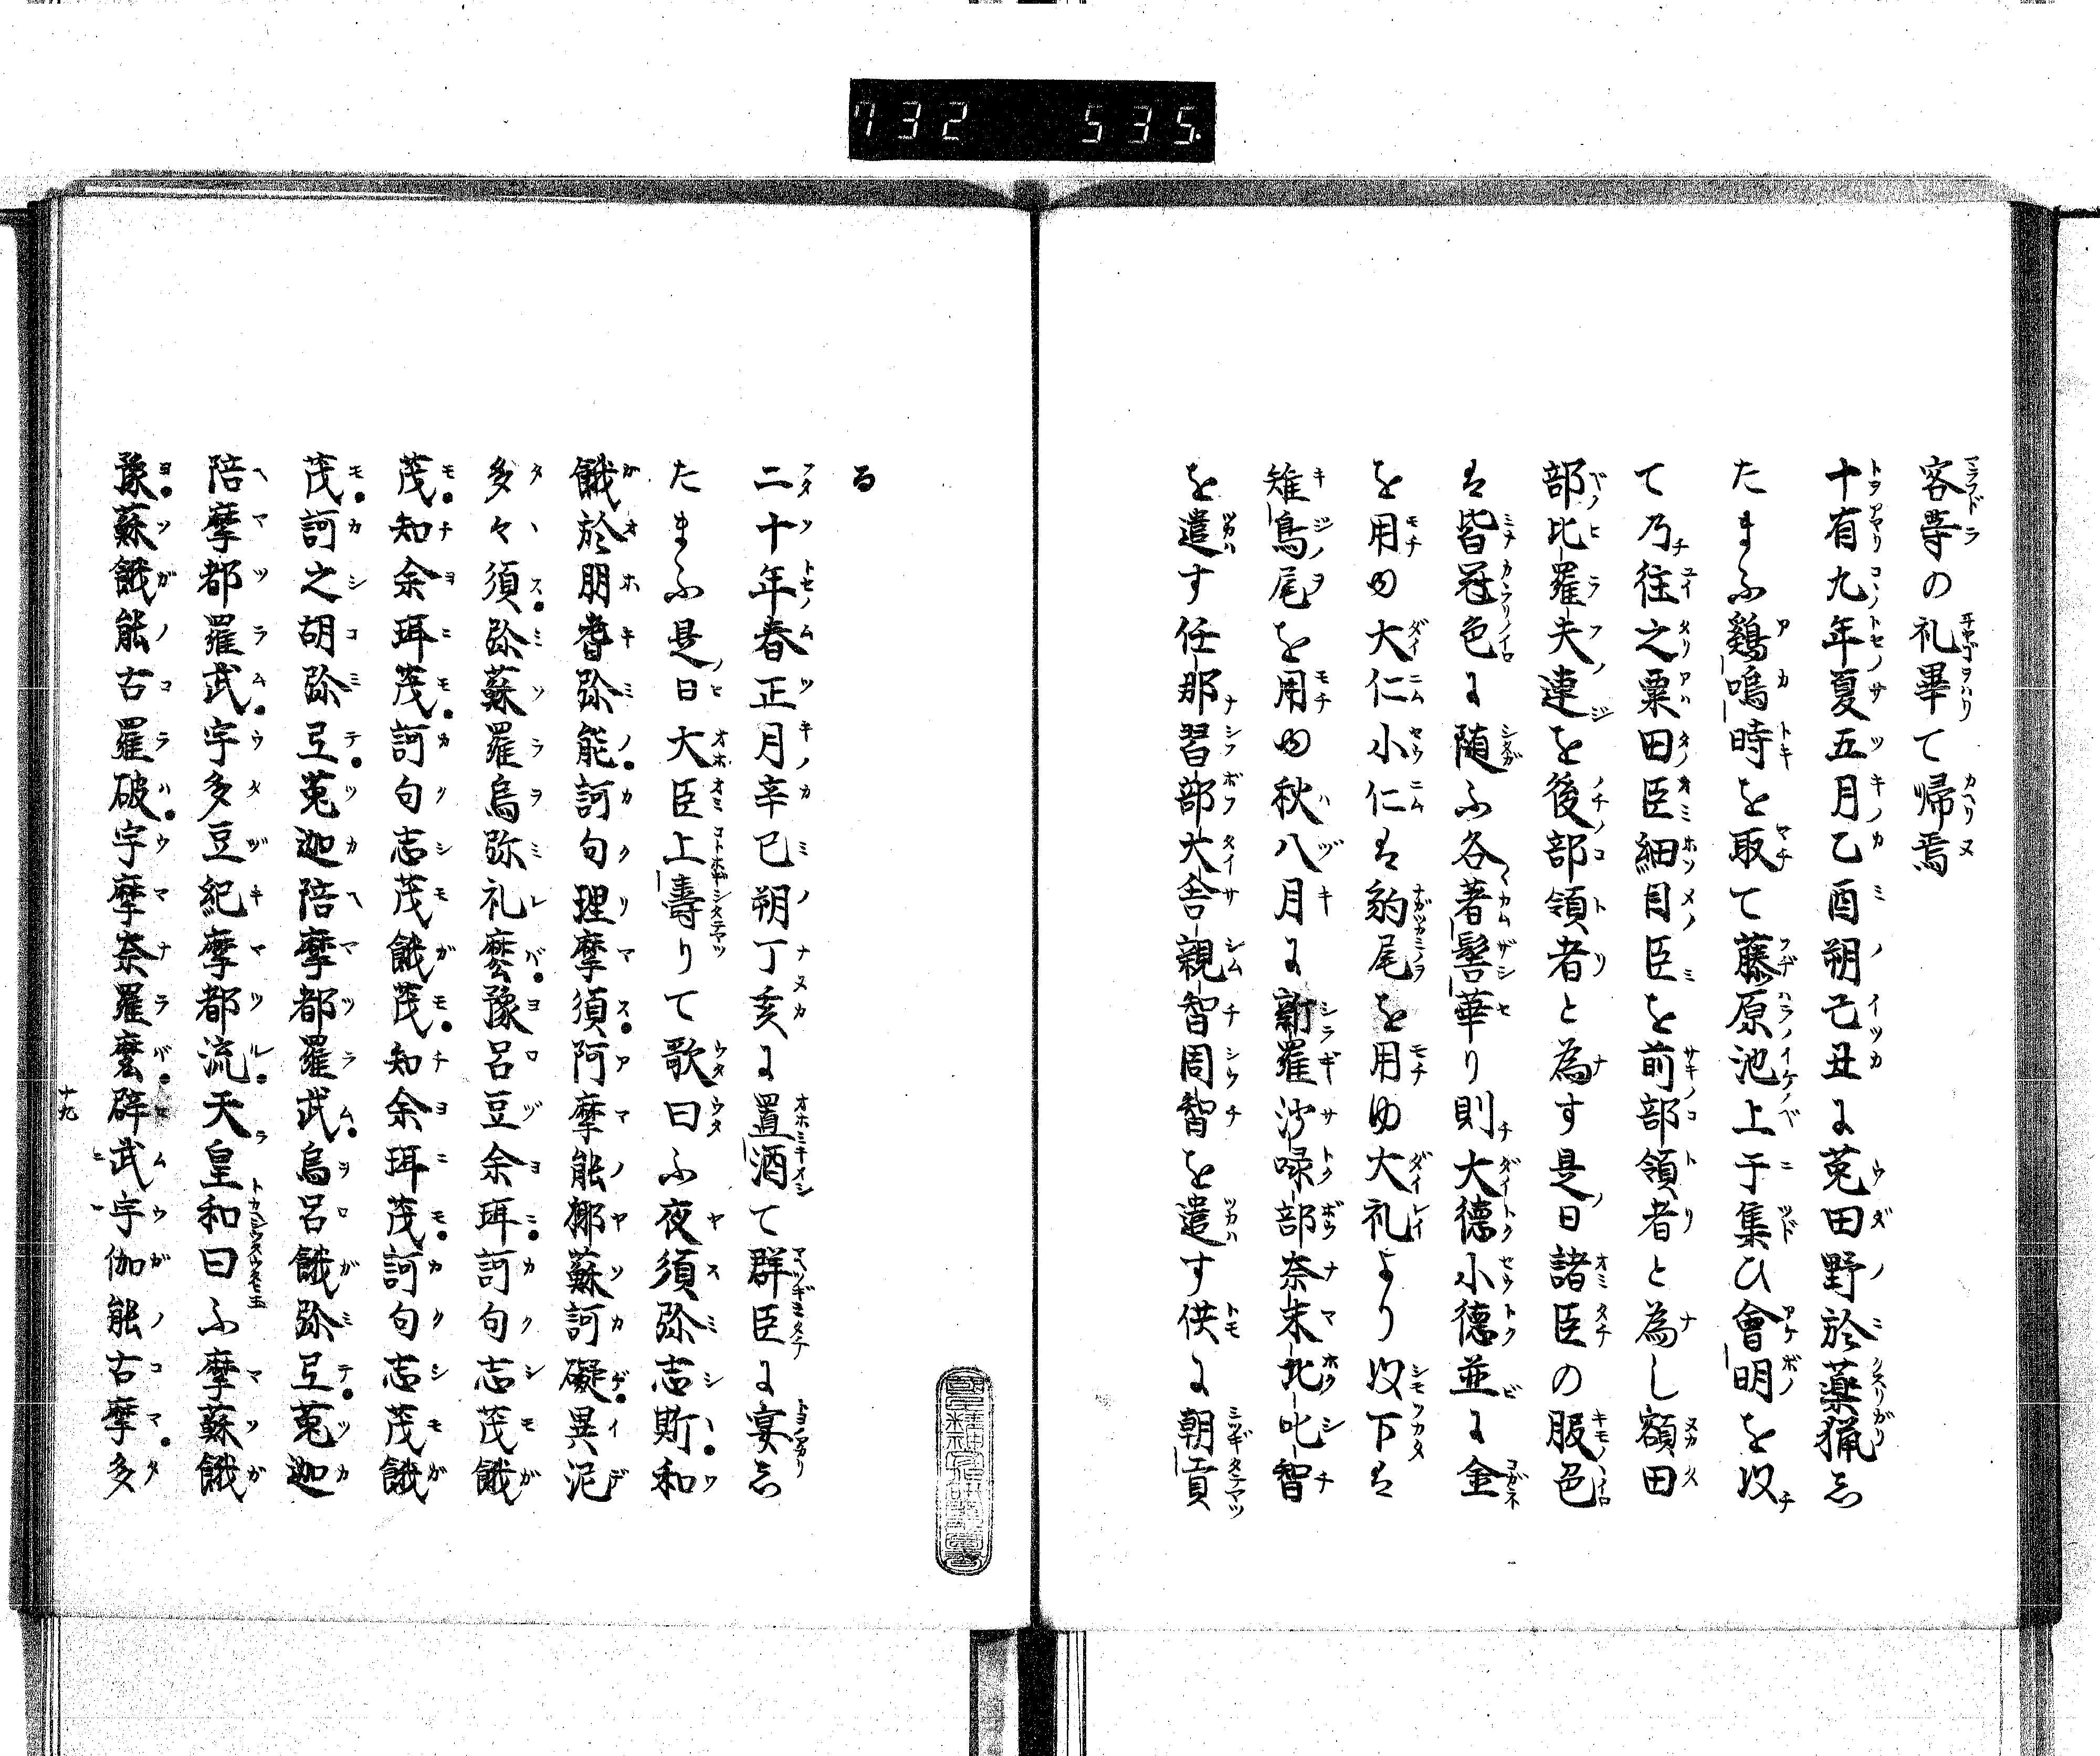 732 535
客等の礼畢て帰焉
十有九年夏五月乙酉朔己丑に菟田野於薬猟し
たまふ鷄鳴時を取て藤原池上于集ひ會明を以
て乃往之粟田臣細目臣を前部領者と為し額田
部比羅夫連を後部領者と為す是日諸臣の服色
は皆冠色に随ふ各著髻華り則大德小德並に金
を用ゆ大仁小仁は豹尾を用ゆ大礼より以下は
雉鳥尾を用ゆ秋八月に新羅沙㖨部奈末北叱智
を遣す任那習部大舎親智周智を遣す供に朝貢
る
二十年春正月辛巳朔丁亥に置酒て群臣に宴し
たまふ是日大臣上壽りて歌曰ふ夜須弥志斯和
餓於朋耆弥能訶句理摩須阿摩能椰蘇訶礙異泥
多々須弥蘇羅烏弥礼麼豫呂豆余珥訶句志茂餓
茂知余珥茂訶句志茂餓茂知余珥茂訶句志茂餓
茂訶之胡弥弖菟迦陪摩都羅武烏呂餓弥弖菟迦
陪摩都羅武宇多豆紀摩都流天皇和曰ふ摩蘇餓
豫蘇餓能古羅破宇摩奈羅麼辟武宇伽能古摩多
十九